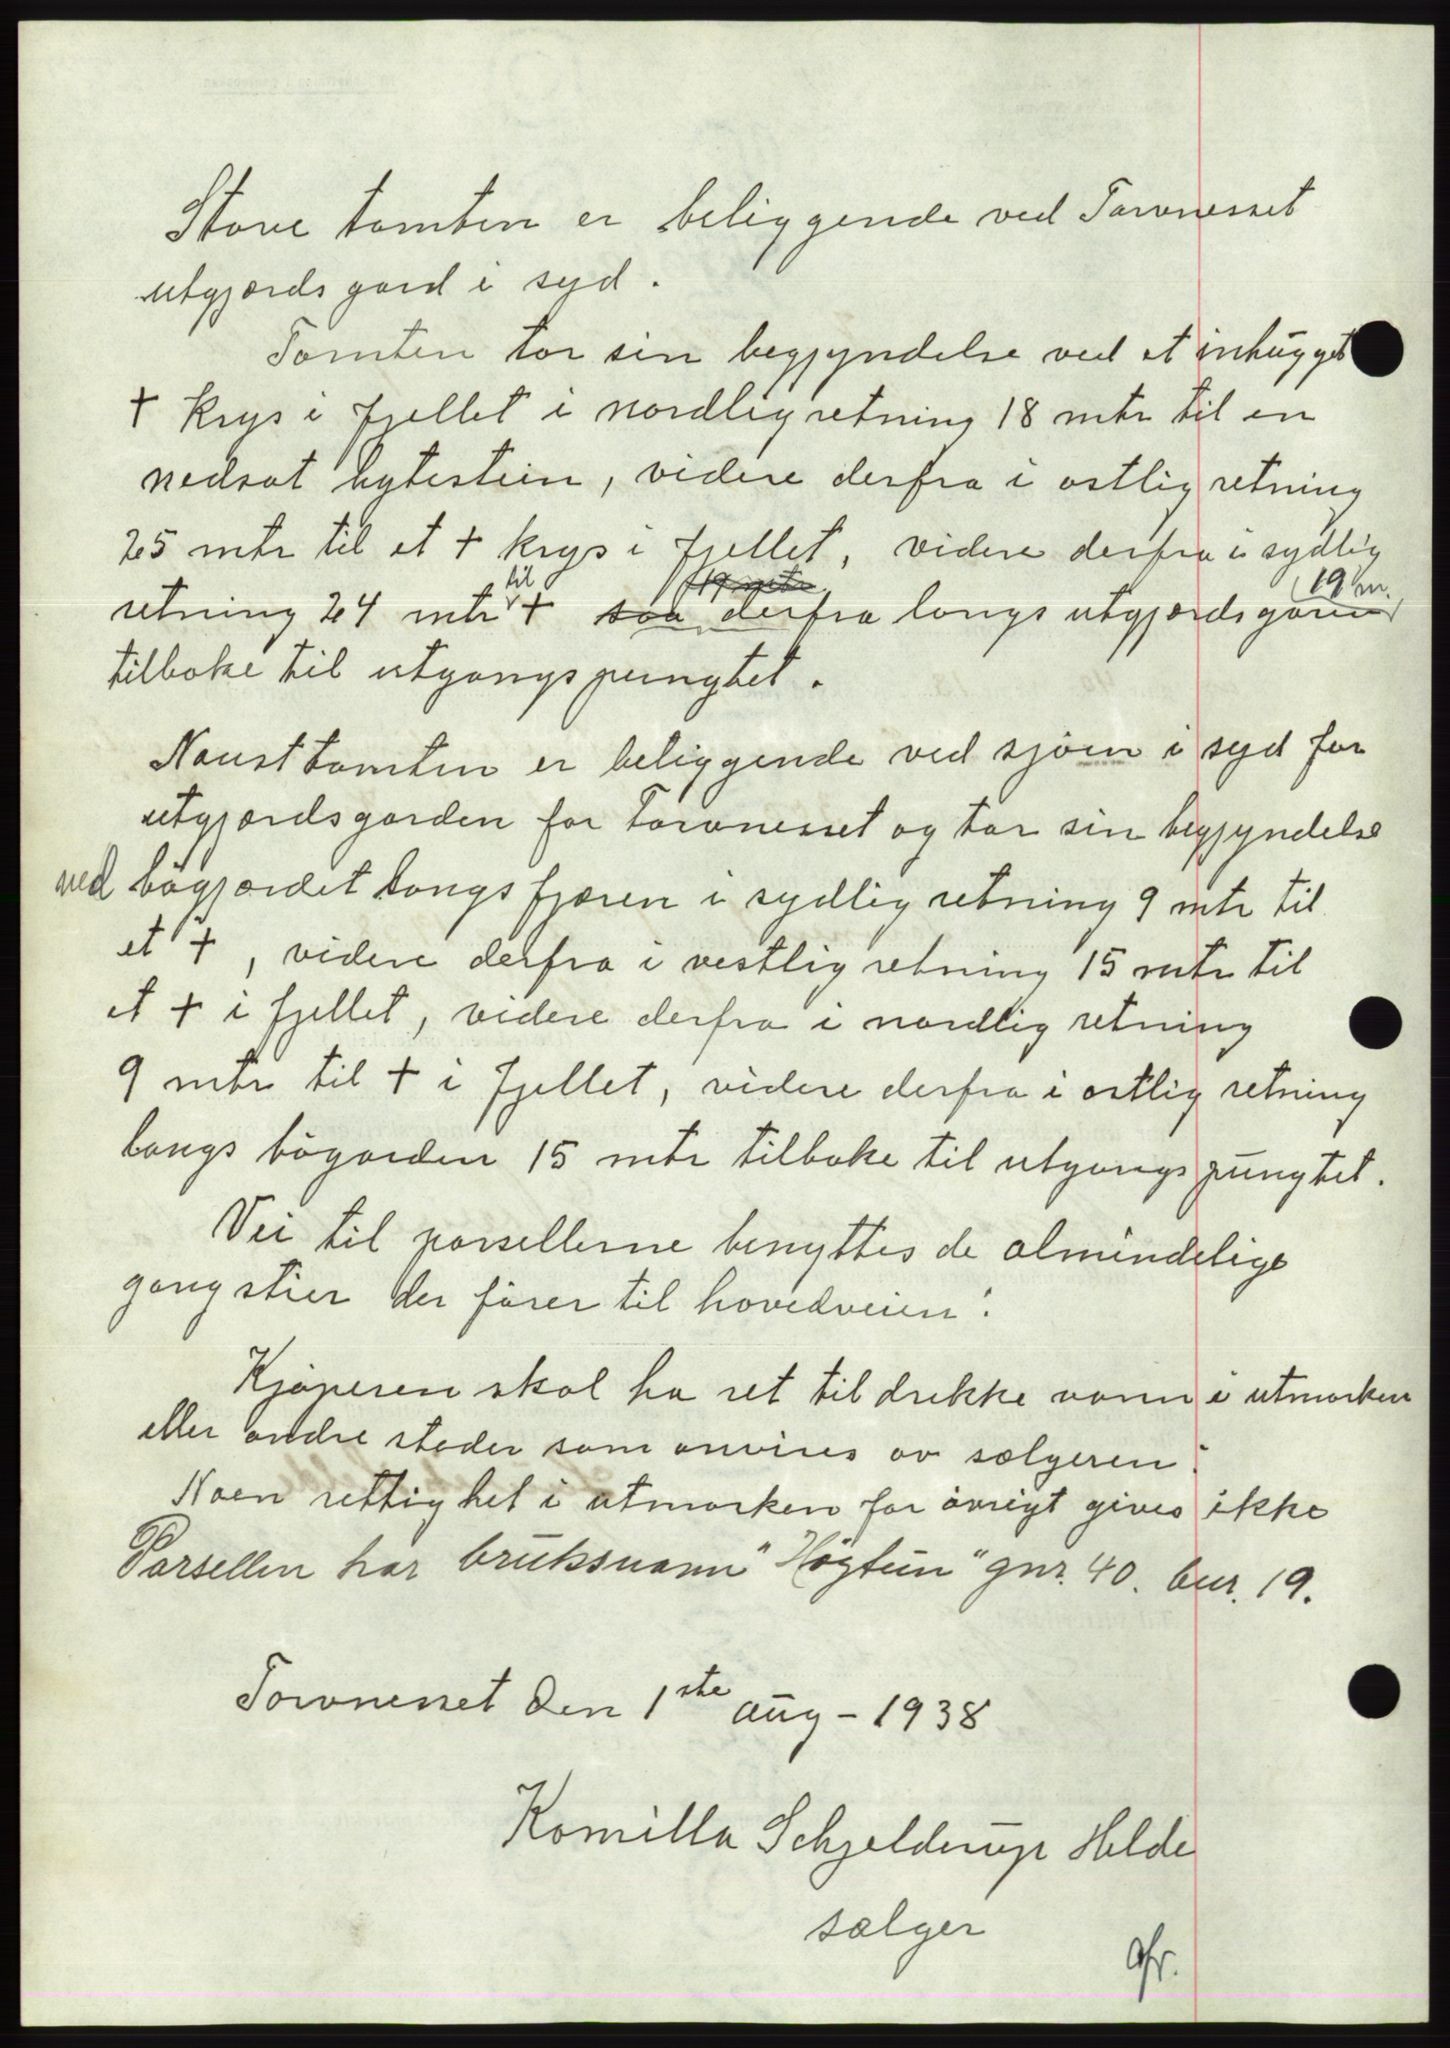 Stove tomten er beliggende ved Tarvnesset
utgjærdsgard i syd.
Tomten tar sin begjyndelse ved et inhugget
+ krys i fjellet i nordlig retning 18 mtr til en
nedsat bytestein, videre derfra i østlig retning
25 mtr til et + krys i fjellet, videre derfra i sydlig
retning 24 mtr til + saa derfra langs utgjærdsgaren 19 m.
tilbake til utgangspungtet.
Nausttomten er beliggende ved sjøen i syd for
utgjærdsgarden for Tarvnesset og tar sin begjyndelse
ved bøgjærdet langs fjæren i sydlig retning 9 mtr til
et +, videre derfra i vestlig retning 15 mtr til
et + i fjellet, videre derfra i nordlig retning
9 mtr til + i fjellet, videre derfra i østlig retning
langs bøgarden 15 mtr tilbake til utgangspungtet.
Vei til parsellerne benyttes de almindelige
gangstier der fører til hovedveien.
Kjøperen skal ha ret til drikke vann i utmarken
eller andre steder som anvises av sælgeren.
Noen rettighet i utmarken for øvrigt gives ikke
Parsellen har bruksnavn "Høgtun" gnr. 40. bnr. 19.
Tarvnesset den 1ste aug - 1938
Kamilla Schjelderup Helde
sælger